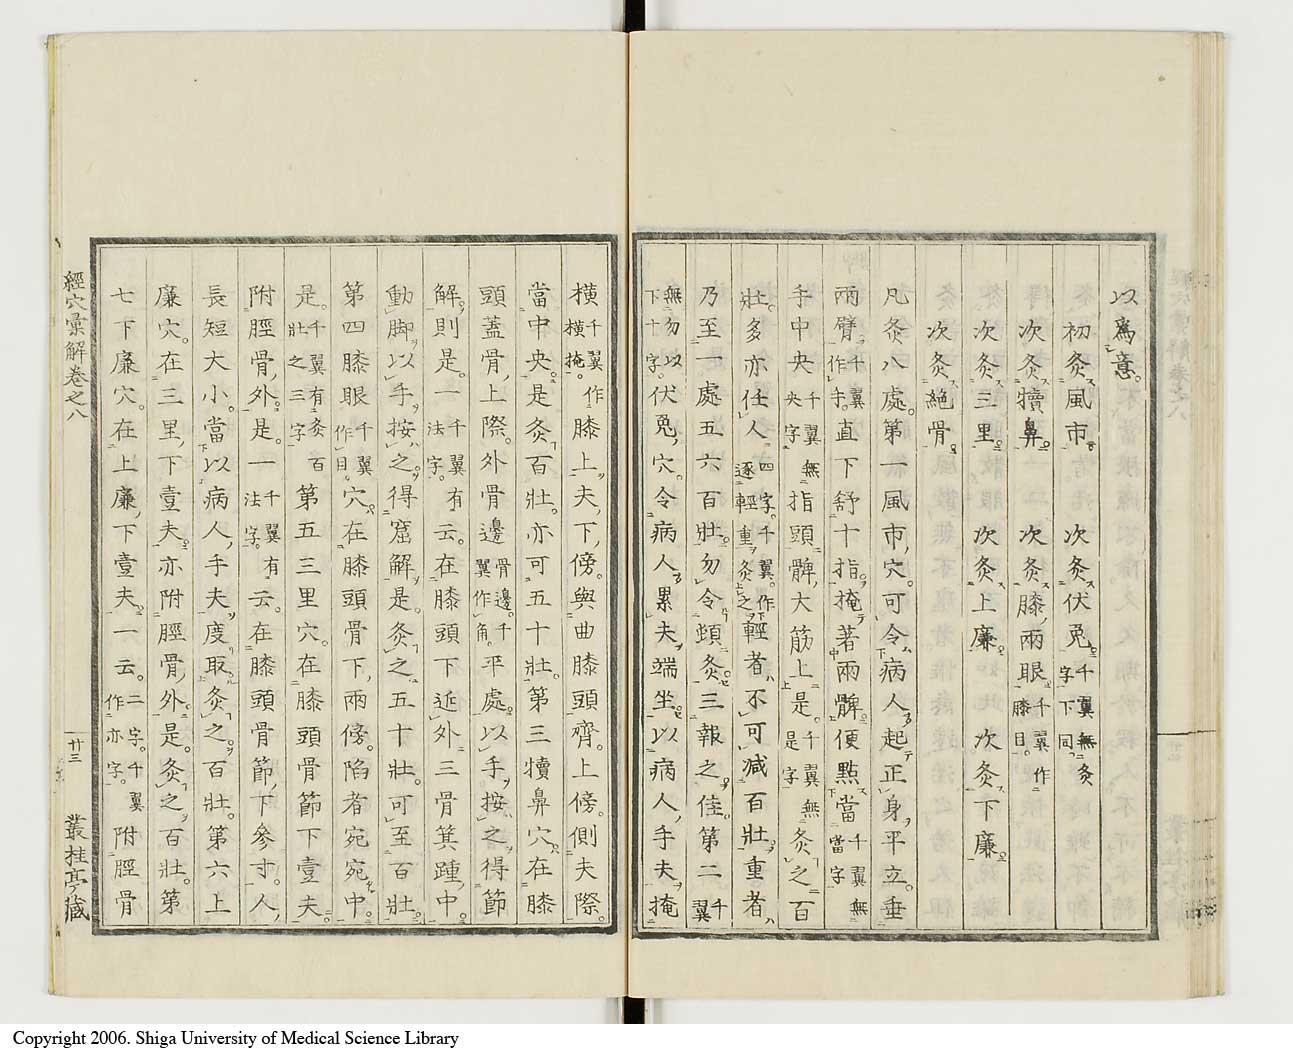 以爲意。
初灸風市。 次灸伏兎。千翼無灸字下同。
次灸犢鼻。 次灸膝兩眼。千翼作膝目。
次灸三里。 次灸上廉。 次灸下廉。
次灸絶骨。
凡灸八處。第一風市穴。可令病人起正身平立。垂
兩臂。千翼作手。直下舒十指。掩著兩髀。便點當千翼無當字
手中央千翼無央字指頭髀大筋上是。千翼無是字灸之百
壯。多亦任人。四字。千翼。作逐輕重灸之輕者不可減百壯。重者
乃至一處五六百壯。勿令頻灸。三報之佳。第二千翼
無勿以下十字。伏兎穴。令病人累夫端坐。以病人手夫掩
横千翼作横掩。膝上。夫下傍。與曲膝頭齊。上傍。側夫際。
當中央。是灸百壯。亦可五十壯。第三犢鼻穴。在膝
頭蓋骨上際。外骨邊骨邊。千翼作角。平處。以手按之。得節
解則是。一千翼有法字。云。在膝頭下近外三骨箕踵中。
動脚。以手按之。得窟解是。灸之五十壯。可至百壯。
第四膝眼千翼作目。穴。在膝頭骨下兩傍。陷者宛宛中。
是。千翼有灸百壯之三字第五三里穴。在膝頭骨節下壹夫。
附脛骨外。是。一千翼有法字。云。在膝頭骨節下參寸。人
長短大小。當以病人手夫度取灸之。百壯。第六上
廉穴。在三里下壹夫。亦附脛骨外。是。灸之百壯。第
七下廉穴。在上廉下壹夫。一云。二字。千翼作亦字。附脛骨
經穴彙解卷之八
廿三
叢桂亭藏
Copyright 2006. Shiga University of Medical Science Library